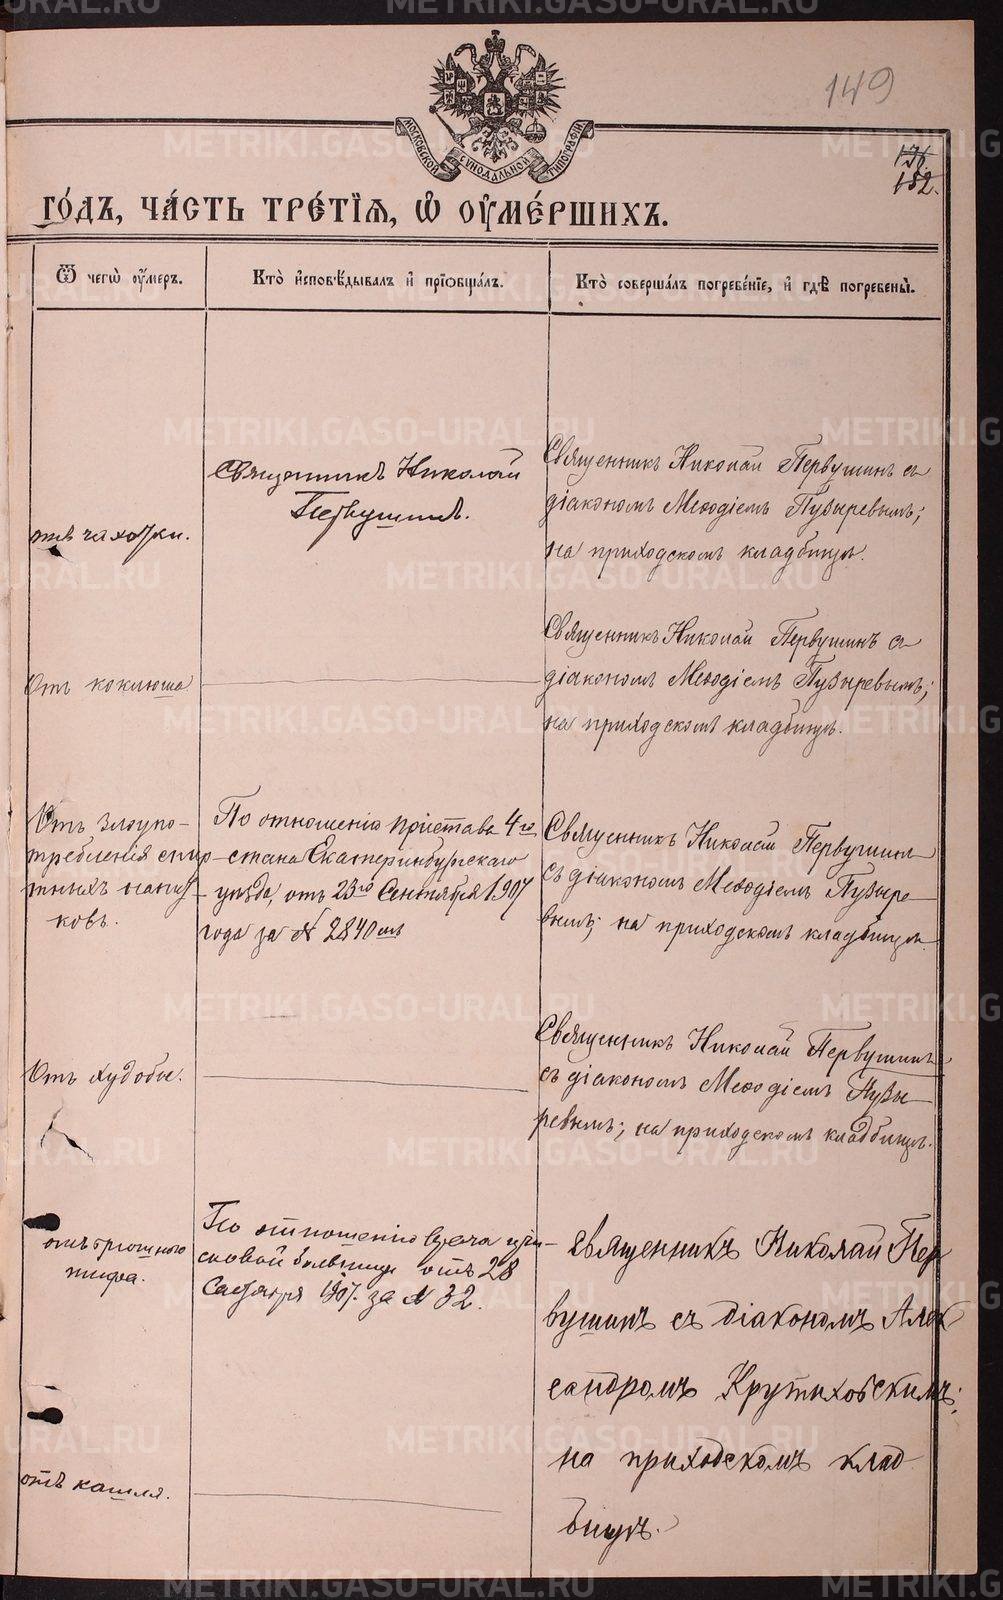 149
176.
182.
МОСКОВСКОЙ СУНОДАЛЬНОЙ ТИПОГРАФІИ
го́дъ, ча́сть тре́тїѧ, ѡ҆ ᲂу҆ме́ршихъ.
Ѿ чегѡ̀ ᲂу҆́меръ.
Кто̀ и҆сповѣ́дывалъ и҆ прїѡбща́лъ.
Кто̀ соверша́лъ погребе́нїе, и҆ гдѣ̀ погребены̀.
отъ чахотки.
Священникъ Николай
Первушинъ.
Священникъ Николай Первушинъ съ
діакономъ Меѳодіемъ Пузыревымъ;
на приходскомъ кладбищѣ.
Отъ коклюша
Священникъ Николай Первушинъ съ
діакономъ Меѳодіемъ Пузыревымъ;
на приходскомъ кладбищѣ.
Отъ злоупо-
требленія спир-
тныхъ напит-
ковъ.
По отношенію пристава 4го
стана Екатеринбургскаго
уѣзда, отъ 23го Сентября 1907
года за № 2840мъ
Священникъ Николай Первушинъ
съ діакономъ Меѳодіемъ Пузыре-
вымъ; на приходскомъ кладбищѣ.
Отъ худобы.
Священникъ Николай Первушинъ
съ діакономъ Меѳодіемъ Пузы-
ревымъ; на приходскомъ кладбищѣ.
отъ брюшного
тифа.
По отношенію врача
отъ 28
Сентября 1907. за № 32.
Священникъ Николай Пер
вушинъ съ діакономъ Алек
сандромъ Крутиховскимъ;
на приходскомъ клад
бищѣ.
отъ кашля.
METRIKI.GASO-URAL.RU